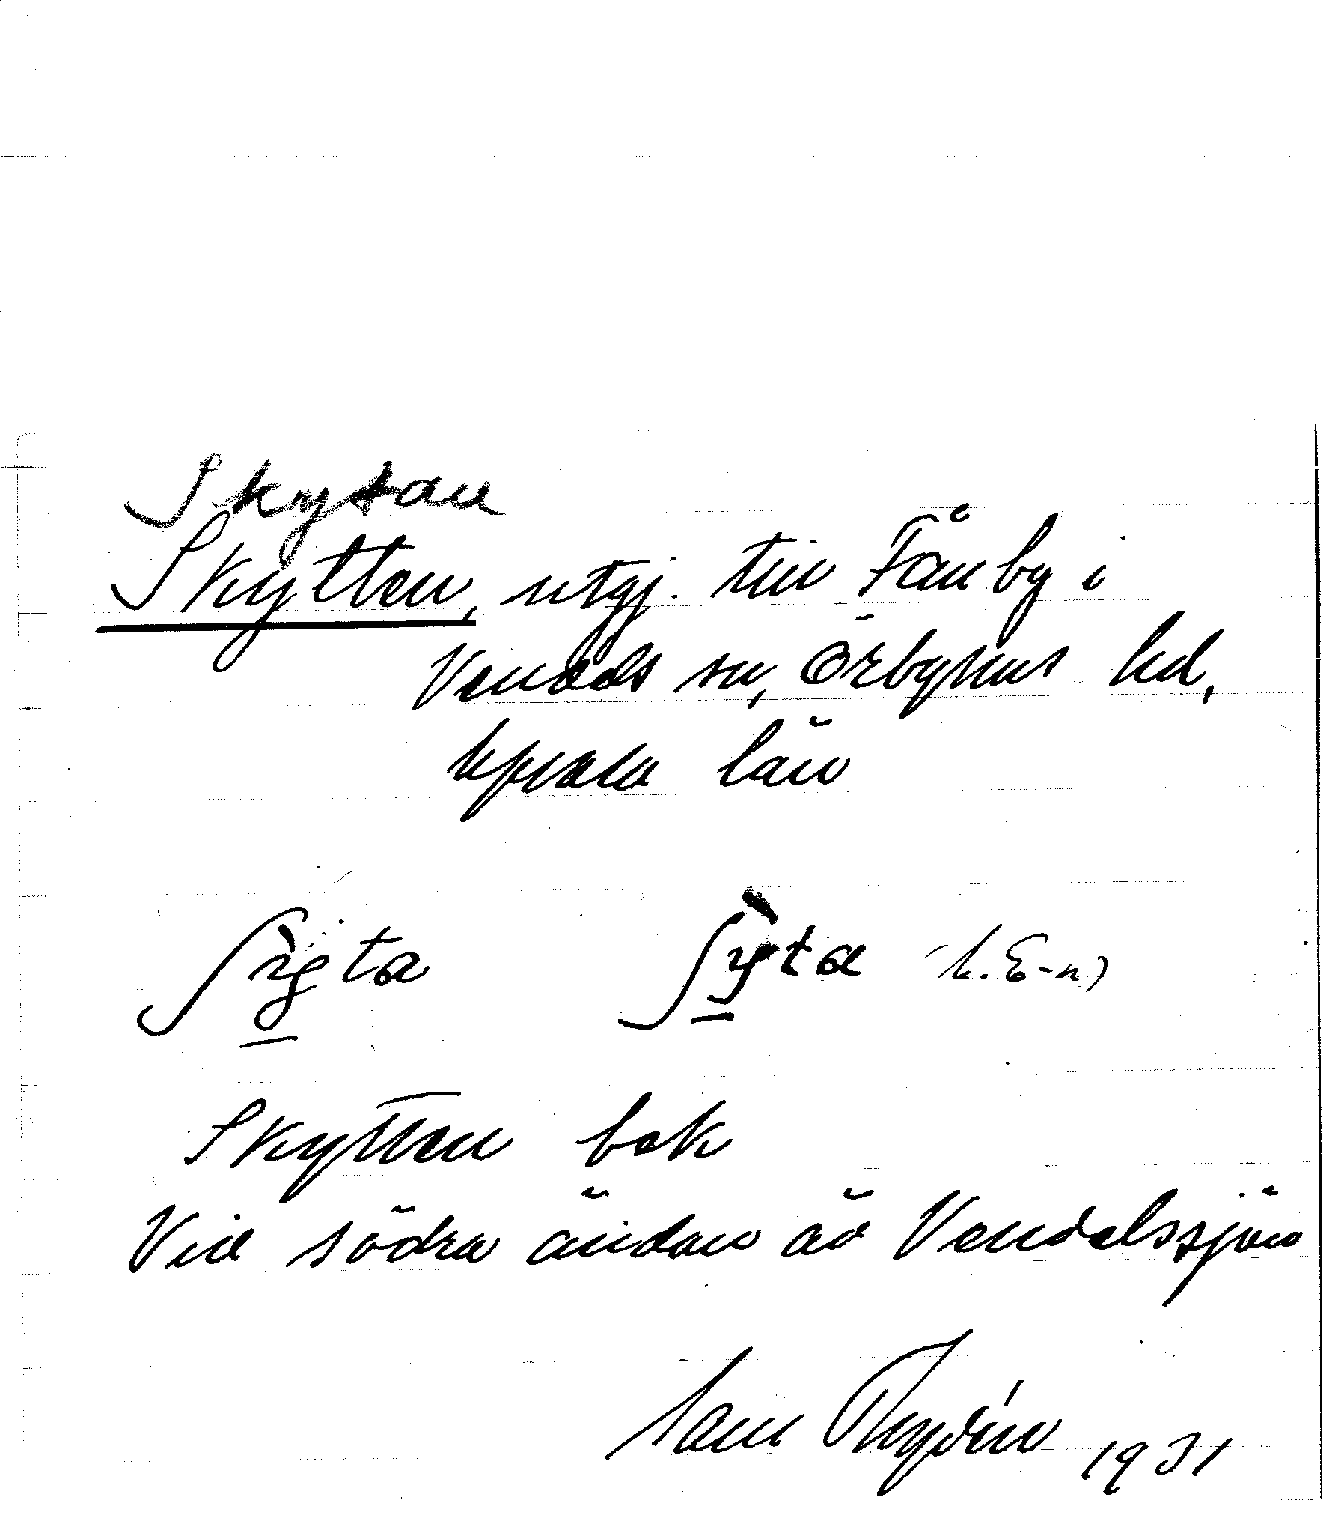 Skytan
Skyttan, utgj. till Fånby i
Vendels sn, Örbyhus hd,
Upsala län
ʃỳta ʃỳta (h. E-n)
Skyttan bok
Vid södra ändan av Vendelssjön
Sam 1931